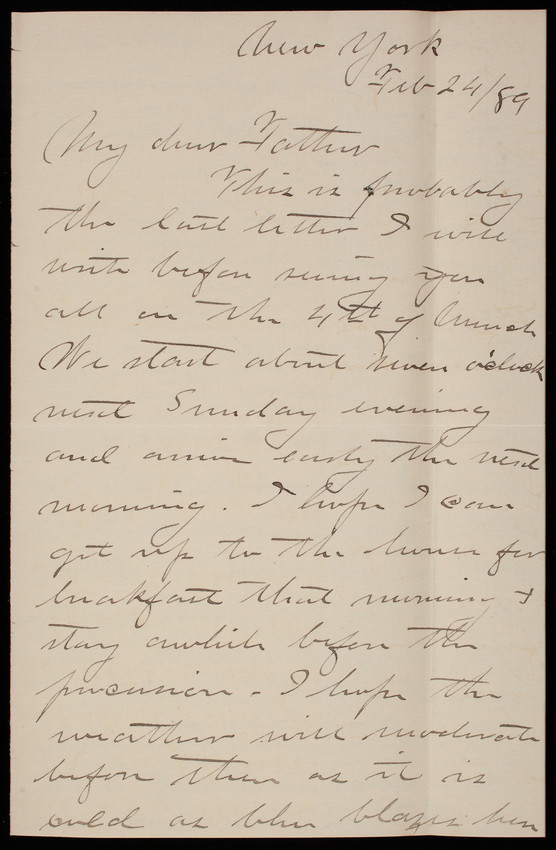 New York
Feb 24/89
My dear Father
This is probably
the last letter I will
write before seeing you
all on the 4th of March
We start about seven o'clock
next Sunday evening
and arrive early the next
morning. I hope I can
get up to the house for
breakfast that morning &
stay awhile before the
procession - I hope the
weather will moderate
before then as it is
cold as blue blazes here